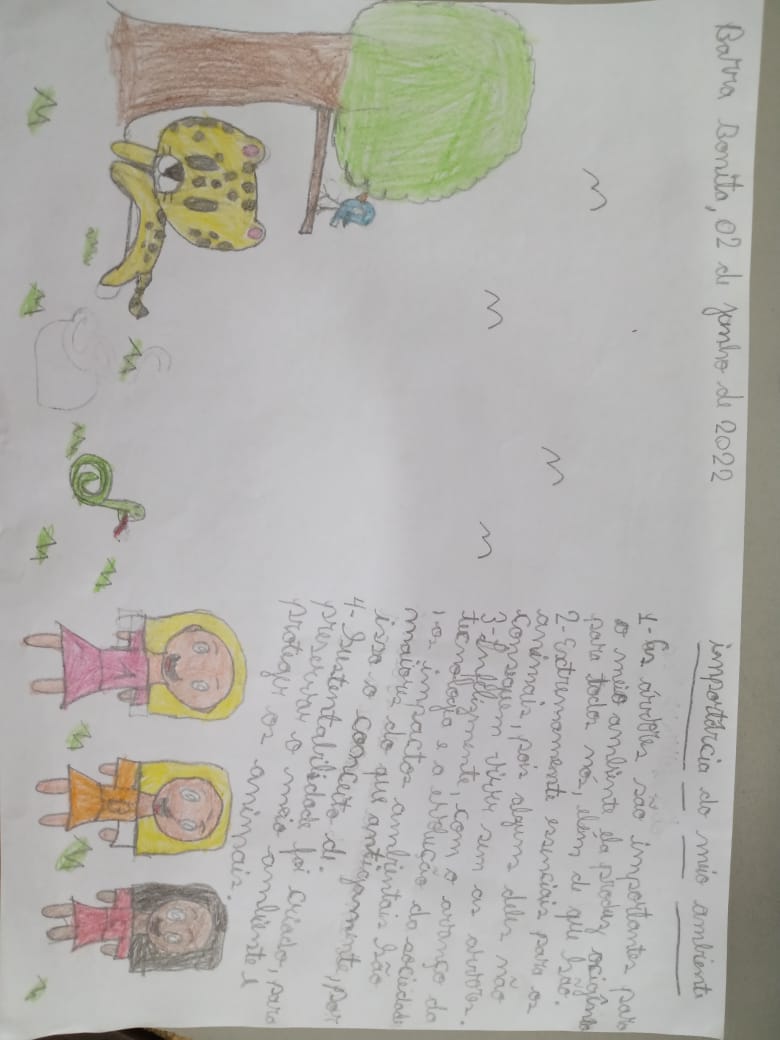 Barra Bonita, 02 de junho de 2022
importância do meio ambiente
1- As árvores são importantes para
o meio ambiente ela produz oxigênio
para todos nós, além de que são
2- Extremamente essenciais para os
animais, pois alguns deles não
conseguem viver sem as árvores.
3- Infelizmente, com o avanço da
tecnologia e a evolução da sociedade
, os impactos ambientais são
maiores do que antigamente, por
isso o conceito de
4- Sustentabilidade foi criado, para
preservar o meio ambiente e
proteger os animais.